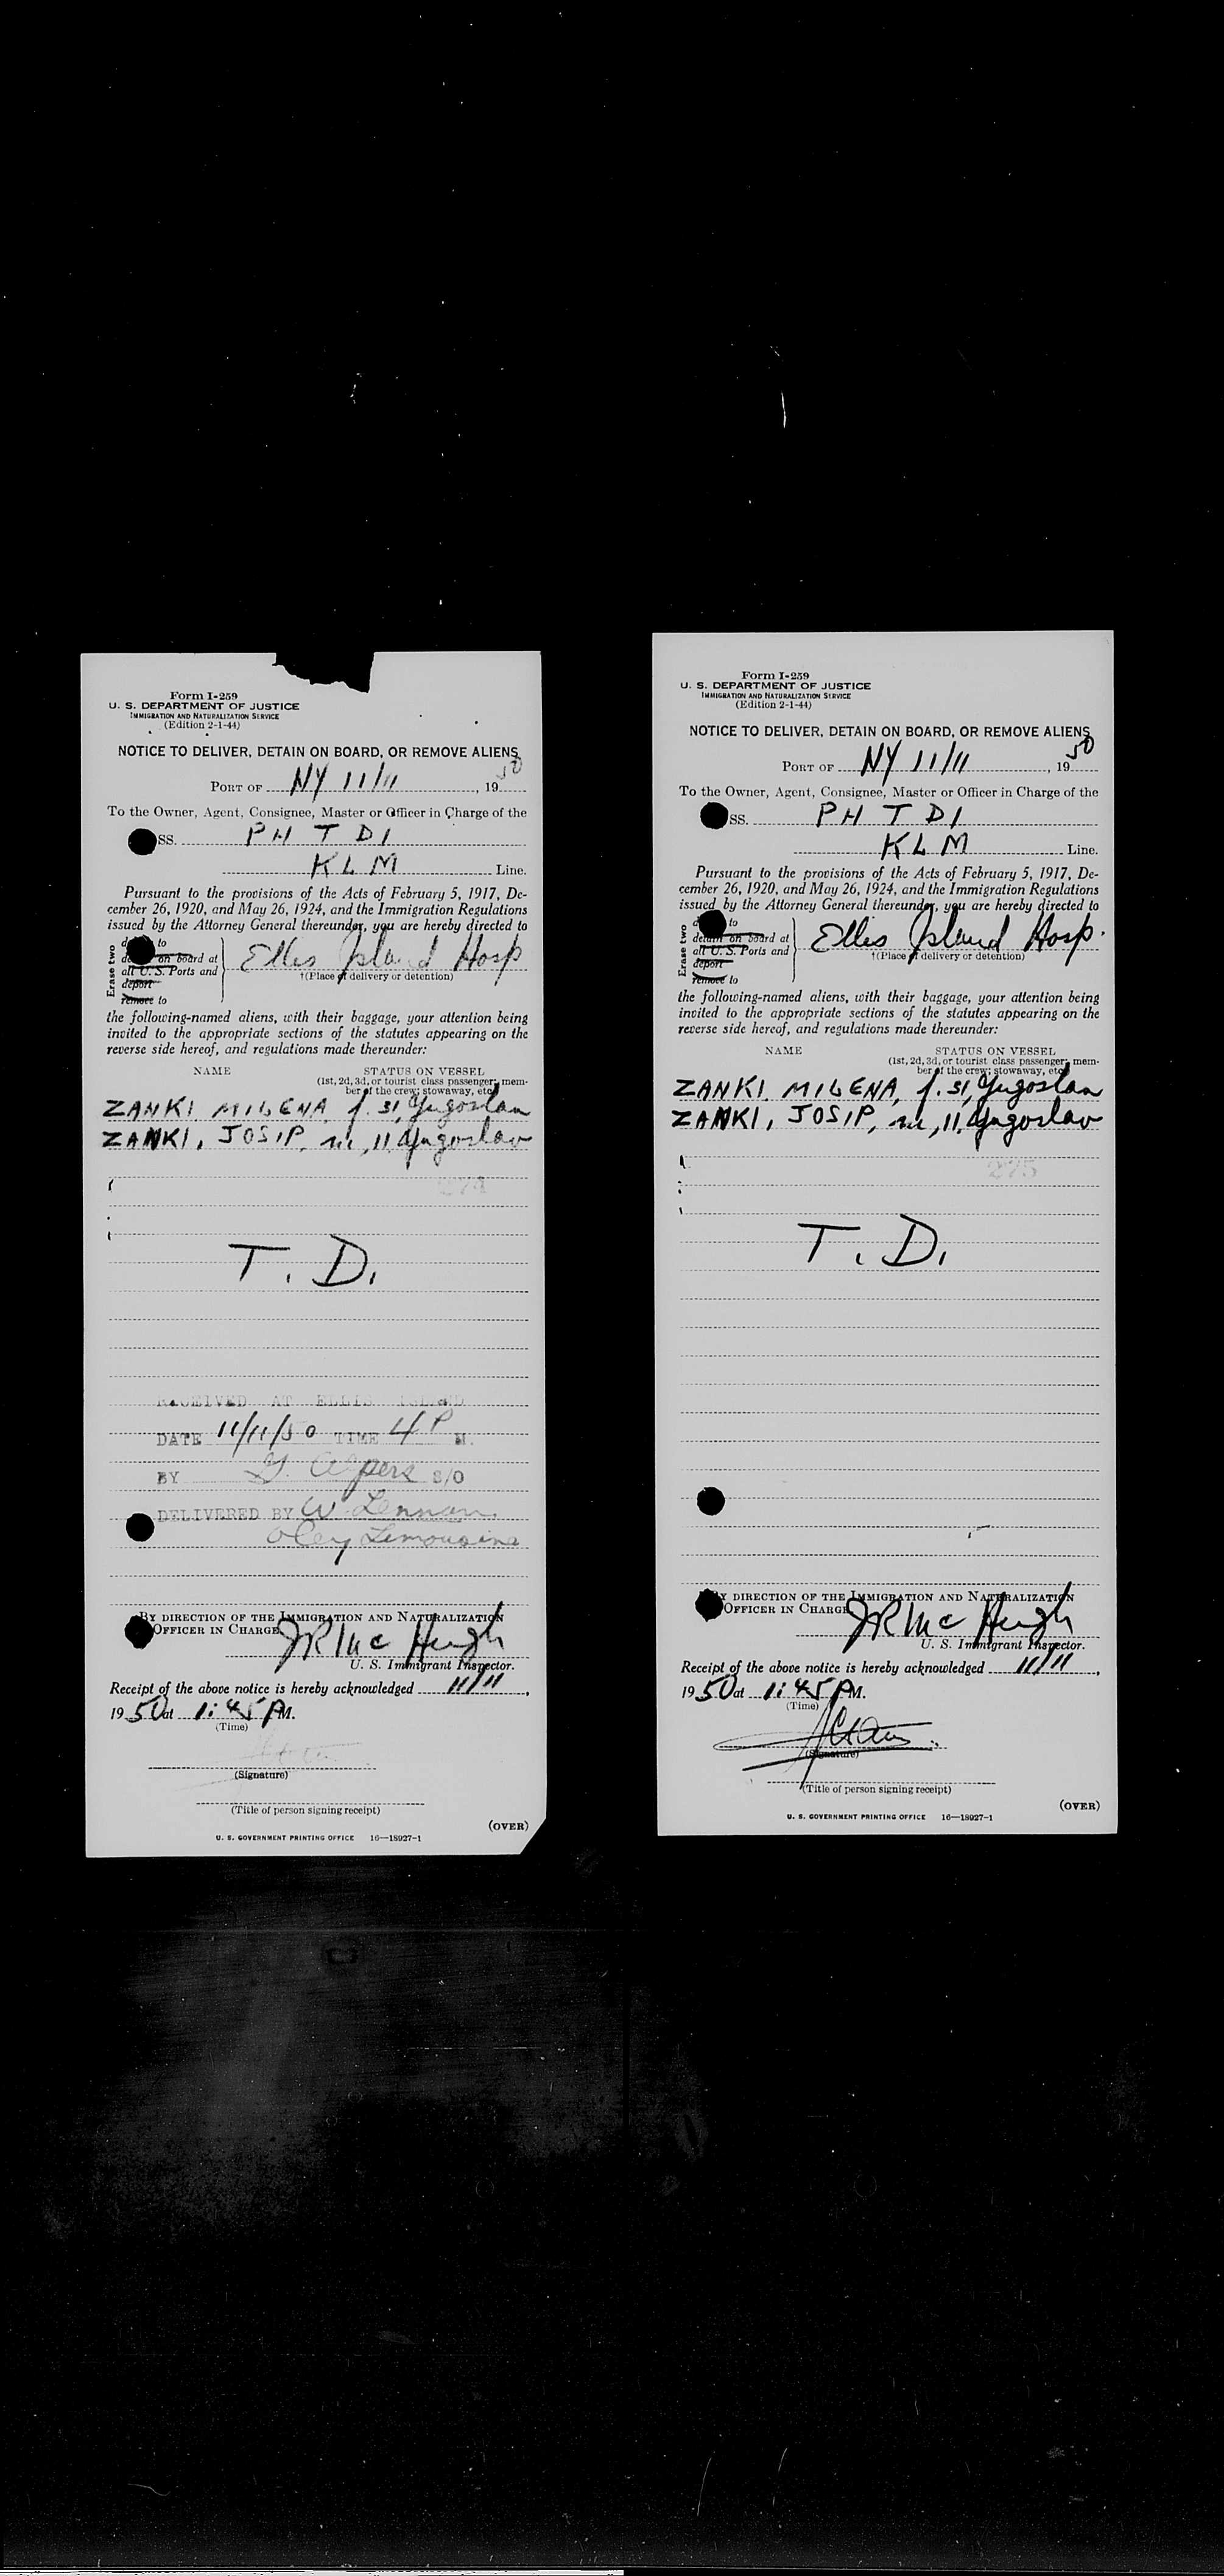 Form I-259
U. S. DEPARTMENT OF JUSTICE
IMMIGRATION AND NATURALIZATION SERVICE
(Edition 2-1-44)
NOTICE TO DELIVER, DETAIN ON BOARD, OR REMOVE ALIENS
PORT OF NY 11/11, 1950
To the Owner, Agent, Consignee, Master or Officer in Charge of the
SS. PH T D I
K L M Line.
Pursuant to the provisions of the Acts of February 5, 1917, De-
cember 26, 1920, and May 26, 1924, and the Immigration Regulations
issued by the Attorney General thereunder, you are hereby directed to
Erase two
to
on board at
all U. S. Ports and
deport
remove to
Ellis Island Hosp
†(Place of delivery or detention)
the following-named aliens, with their baggage, your attention being
invited to the appropriate sections of the statutes appearing on the
reverse side hereof, and regulations made thereunder:
NAME STATUS ON VESSEL
(1st, 2d, 3d, or tourist class passenger; mem-
ber of the crew; stowaway, etc.)
ZANKI MILENA f. 31, Yugoslav
ZANKI, JOSIP, m, 11, Yugoslav
274
T. D.
RECEIVED AT ELLIS ISLAND
DATE 11/11/50 TIME 4 P M.
BY G. Alpers S/O
DELIVERED BY W Lennan
Limousine
BY DIRECTION OF THE IMMIGRATION AND NATURALIZATION
OFFICER IN CHARGE
JR Mc Hugh
U. S. Immigrant Inspector.
Receipt of the above notice is hereby acknowledged 11/11,
1950 at 1:45 PM.
(Time)
(Signature)
(Title of person signing receipt)
(OVER)
U. S. GOVERNMENT PRINTING OFFICE 16—18927-1
Form I-259
U. S. DEPARTMENT OF JUSTICE
IMMIGRATION AND NATURALIZATION SERVICE
(Edition 2-1-44)
NOTICE TO DELIVER, DETAIN ON BOARD, OR REMOVE ALIENS
PORT OF NY 11/11, 1950
To the Owner, Agent, Consignee, Master or Officer in Charge of the
SS. PH T D I
K L M Line.
Pursuant to the provisions of the Acts of February 5, 1917, De-
cember 26, 1920, and May 26, 1924, and the Immigration Regulations
issued by the Attorney General thereunder, you are hereby directed to
Erase two
to
detain on board at
all U. S. Ports and
deport
remove to
Ellis Island Hosp.
†(Place of delivery or detention)
the following-named aliens, with their baggage, your attention being
invited to the appropriate sections of the statutes appearing on the
reverse side hereof, and regulations made thereunder:
NAME STATUS ON VESSEL
(1st, 2d, 3d, or tourist class passenger; mem-
ber of the crew; stowaway, etc.)
ZANKI. MILENA, f. 31, Yugoslav
ZANKI, JOSIP, m, 11, Yugoslav
275
T. D.
BY DIRECTION OF THE IMMIGRATION AND NATURALIZATION
OFFICER IN CHARGE
JR Mc Hugh
U. S. Immigrant Inspector.
Receipt of the above notice is hereby acknowledged 11/11,
1950 at 1:45 PM.
(Time)
(Signature)
(Title of person signing receipt)
(OVER)
U. S. GOVERNMENT PRINTING OFFICE 16—18927-1